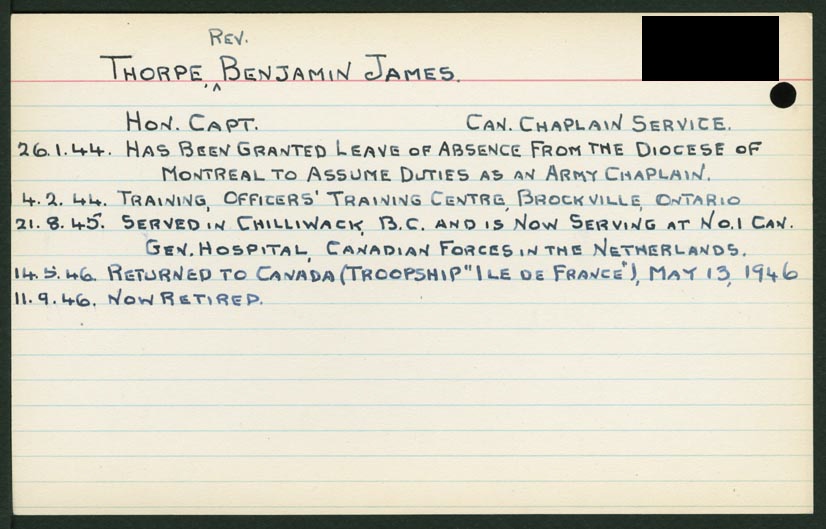 REV.
THORPE, BENJAMIN JAMES.
HON. CAPT. CAN. CHAPLAIN SERVICE.
26.1.44. HAS BEEN GRANTED LEAVE OF ABSENCE FROM THE DIOCESE OF
MONTREAL TO ASSUME DUTIES AS AN ARMY CHAPLAIN.
4.2.44. TRAINING, OFFICERS' TRAINING CENTRE, BROCKVILLE, ONTARIO
21.8.45. SERVED IN CHILLIWACK, B.C. AND IS NOW SERVING AT NO.1 CAN.
GEN. HOSPITAL, CANADIAN FORCES IN THE NETHERLANDS.
14.5.46. RETURNED TO CANADA (TROOPSHIP "ILE DE FRANCE"), MAY 13, 1946
11.9.46. NOW RETIRED.